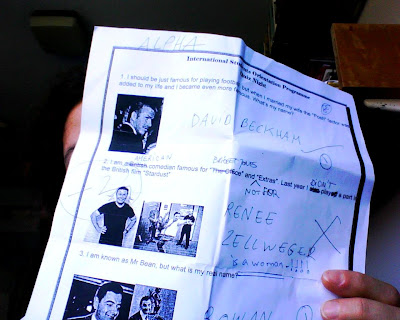 ALPHA
International Student Orientation Programme
Quiz Night
1. I should be just famous for playing football, but when I married my wife the "Posh" factor was
added to my life and I became even more famous. What's my name?
DAVID BECKHAM
AMERICAN BRIDGET JONES
2. I am a British comedian famous for "The Office" and "Extras". Last year I played a part in
DIDN'T
the British film "Stardust".
NOT FOR
RENEE
ZELLWEGER
is a woman!!!!
3. I am known as Mr Bean, but what is my real name?
ROWAN